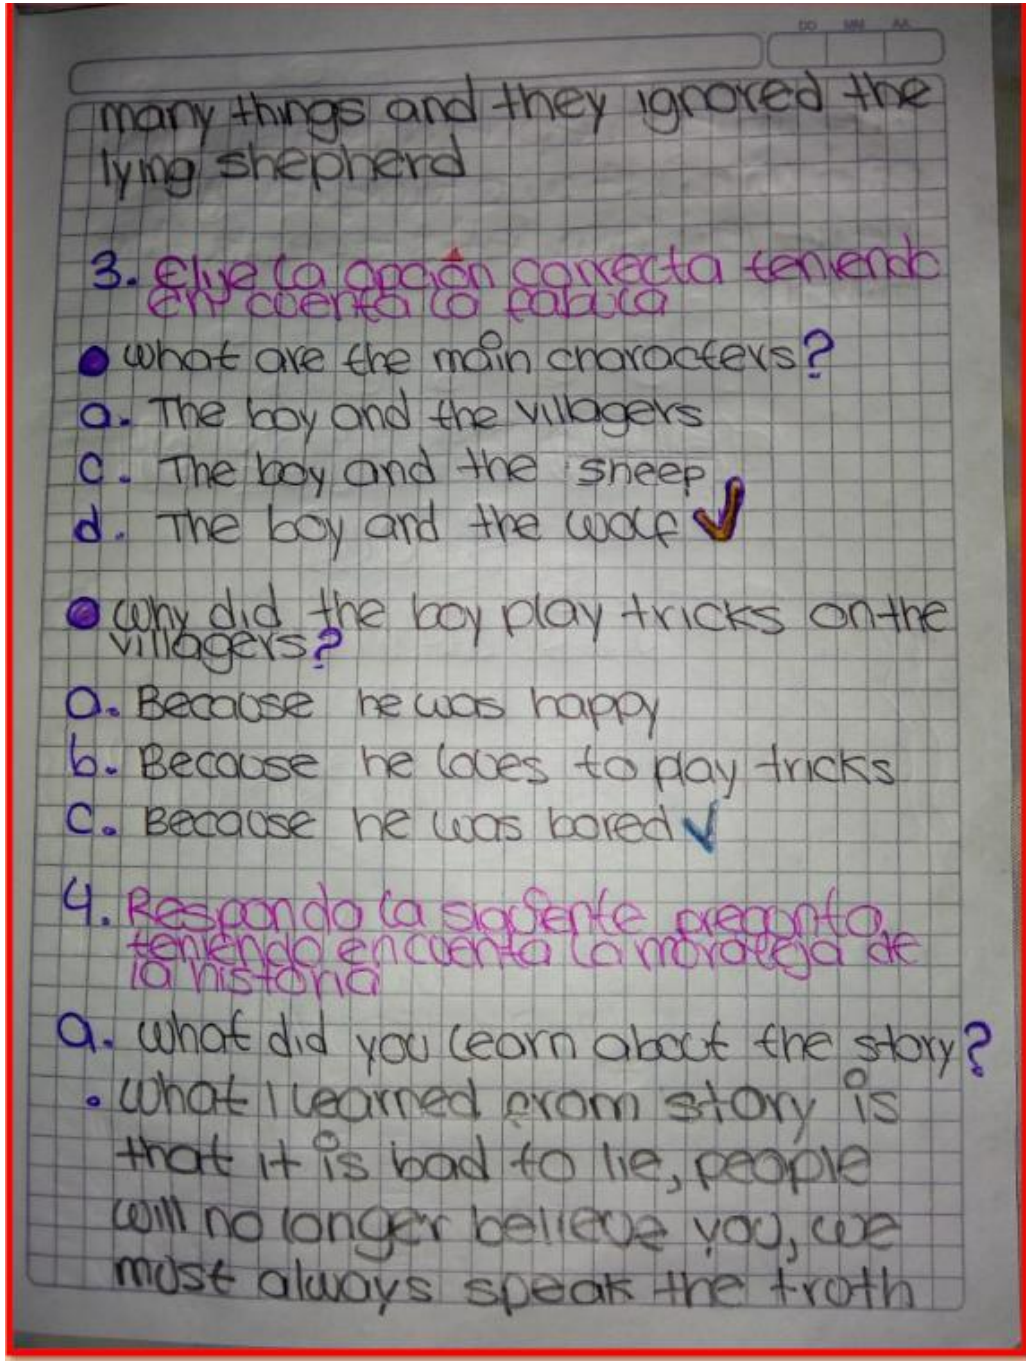 DD MM AA
many things and they ignored the
lying shepherd
3. Elije la opción correcta teniendo
en cuenta la fabula
what are the main characters?
a. The boy and the villagers
c. The boy and the sheep
d. The boy and the wolf
why did the boy play tricks on the
villagers?
a. Because he was happy
b. Because he loves to play tricks
c. Because he was bored
4. Responda la siguiente pregunta
teniendo en cuenta la moraleja de
la historia
a. what did you learn about the story?
. what I learned from story is
that it is bad to lie, people
will no longer believe you, we
must always speak the truth